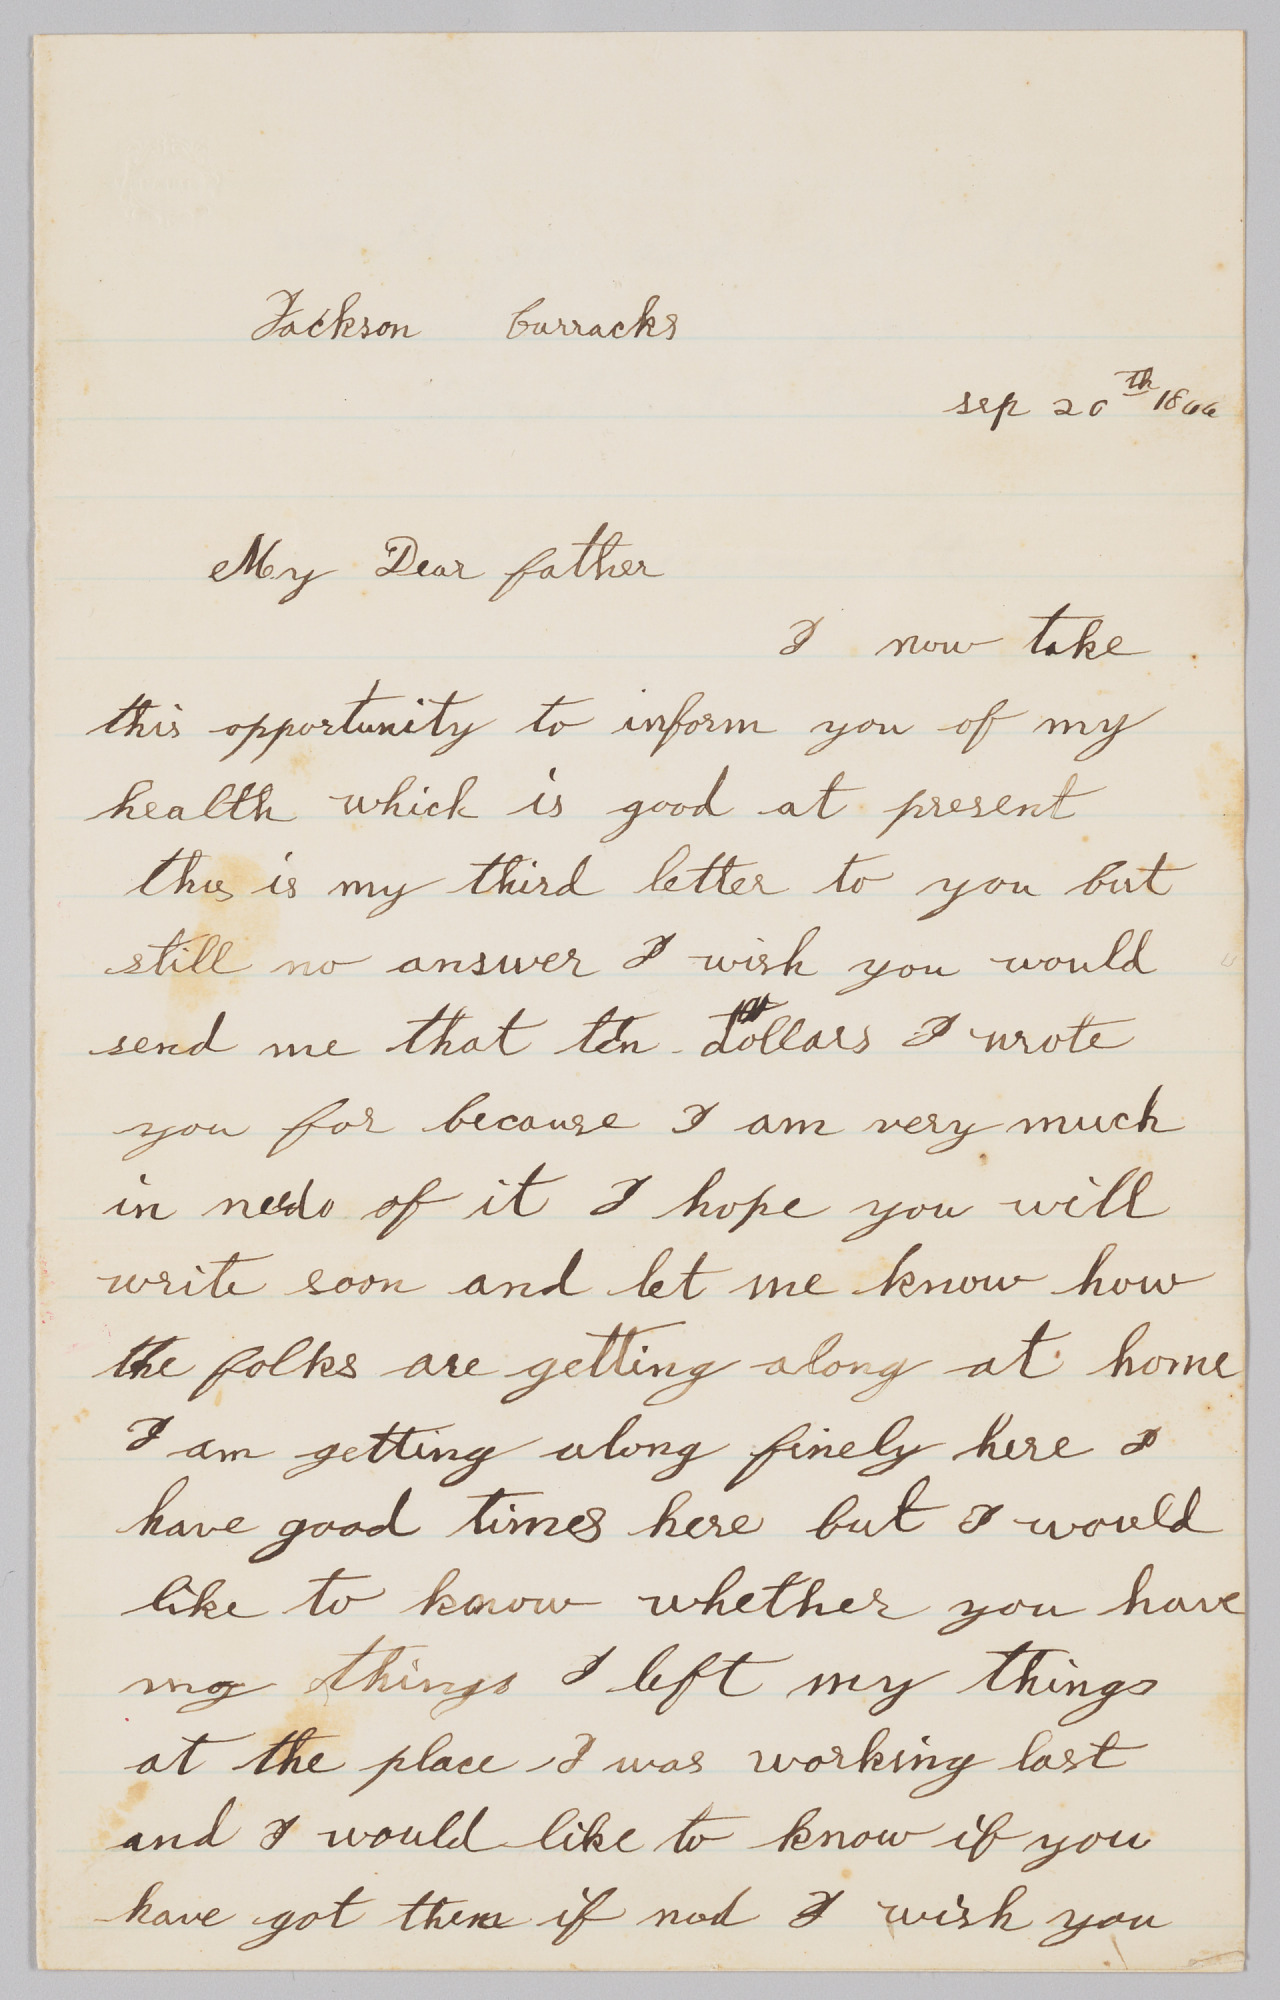 Jackson barracks
sep 20th 1866
My Dear father
I now take
this opportunity to inform you of my
health which is good at present
this is my third letter to you but
still no answer I wish you would
send me that ten dollars I wrote
you for because I am very much
in need of it I hope you will
write soon and let me know how
the folks are getting along at home
I am getting along finely here I
have good times here but I would
like to know whether you have
my things I left my things
at the place I was working last
and I would like to know if you
have got them if nod I wish you